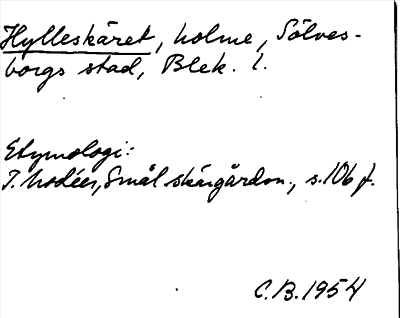 Hylleskäret, holme, Sölves-
borgs stad, Blek. l.
Etymologi:
T. Modéer, Smål skärgårdon, s. 106 f.
C.B. 1954